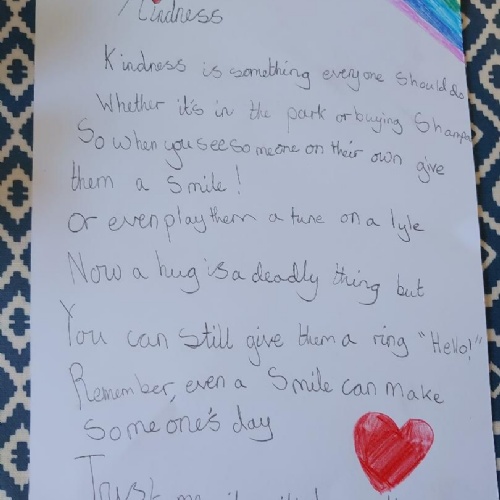 Kindness
Kindness is something everyone should do
Whether it's in the park or buying
So when you see someone on their own give
them a smile!
Or even play them a tune on a lyle
Now a hug is a deadly thing but
You can still give them a ring "Hello!"
Remember, even a smile can make
someone's day
Trust me